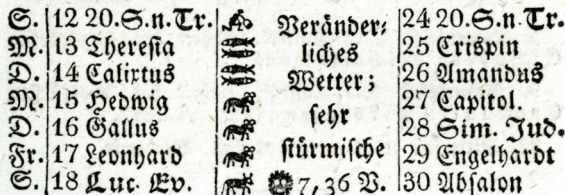 S. 12 20.S.n.Tr. Veränder⸗ 24 20.S.n.Tr.
M. 13 Theresia liches 25 Crispin
D. 14 Calixtus Wetter; 26 Amandus
M. 15 Hedwig sehr 27 Capitol.
D. 16 Gallus stürmische 28 Sim. Jud.
Fr. 17 Leonhard 29 Engelhardt
S. 18 Luc. Ev. 7, 36 V. 30 Absalon